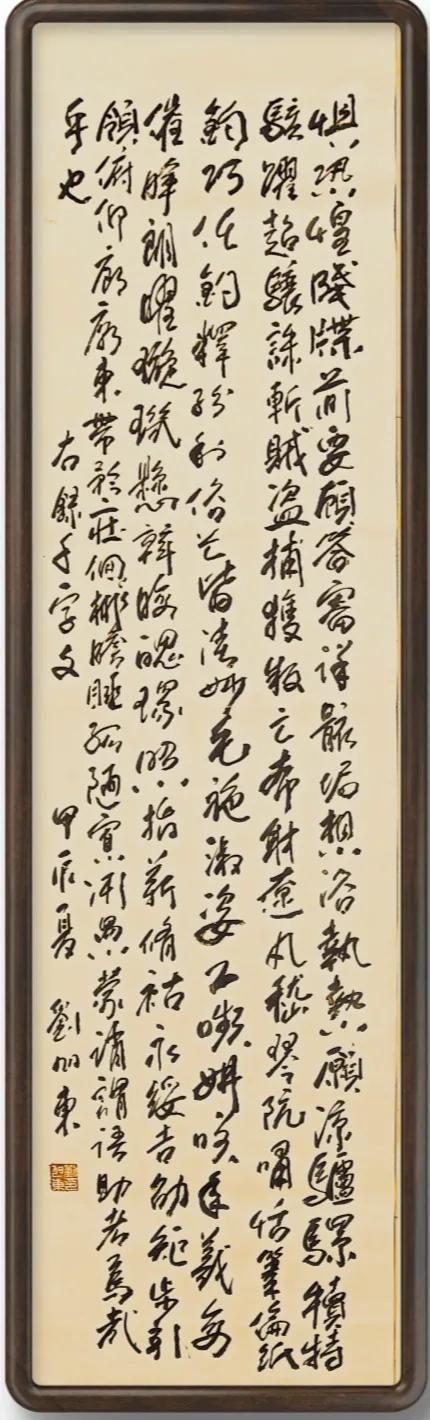 惧恐惶牋牒簡要顧答審詳骸垢想浴執熱願凉驢騾犢特
駭躍超驤誅斬賊盜捕獲叛亡布射遼丸嵇琴阮嘯恬筆倫紙
鈞巧任釣釋紛利俗並皆佳妙毛施淑姿工嚬妍咲年羲每
催暉朗曜璇璣懸斡晦魄環照指薪修祜永綏吉劭矩步引
領俯仰廊廟束帶矜莊徊徘瞻眺孤陋寡聞愚蒙誚謂語助者焉哉
乎也 右錄千字文 甲辰夏 劉旭東